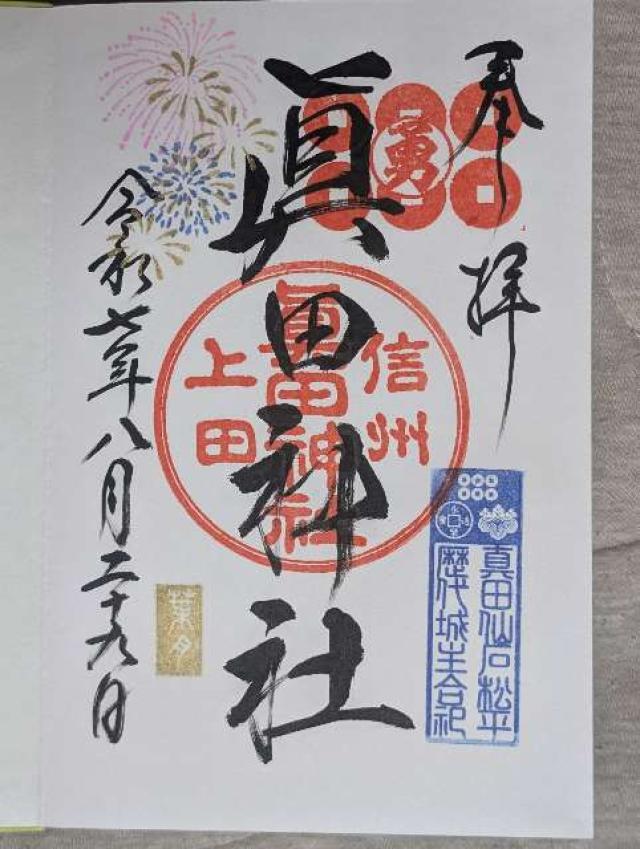 奉拝
勇
眞田神社
信州
眞田神社
上田
真田仙石松平
歴代城主合祀
令和七年八月二十九日
葉月